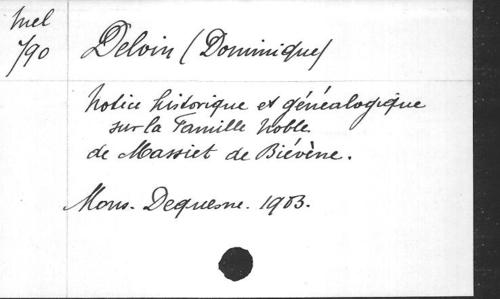 Mel
790
Delvin (Dominique)
Notice historique et généalogique
sur la Famille Noble
de Massiet de Biévène.
Mons. Dequesne. 1903.